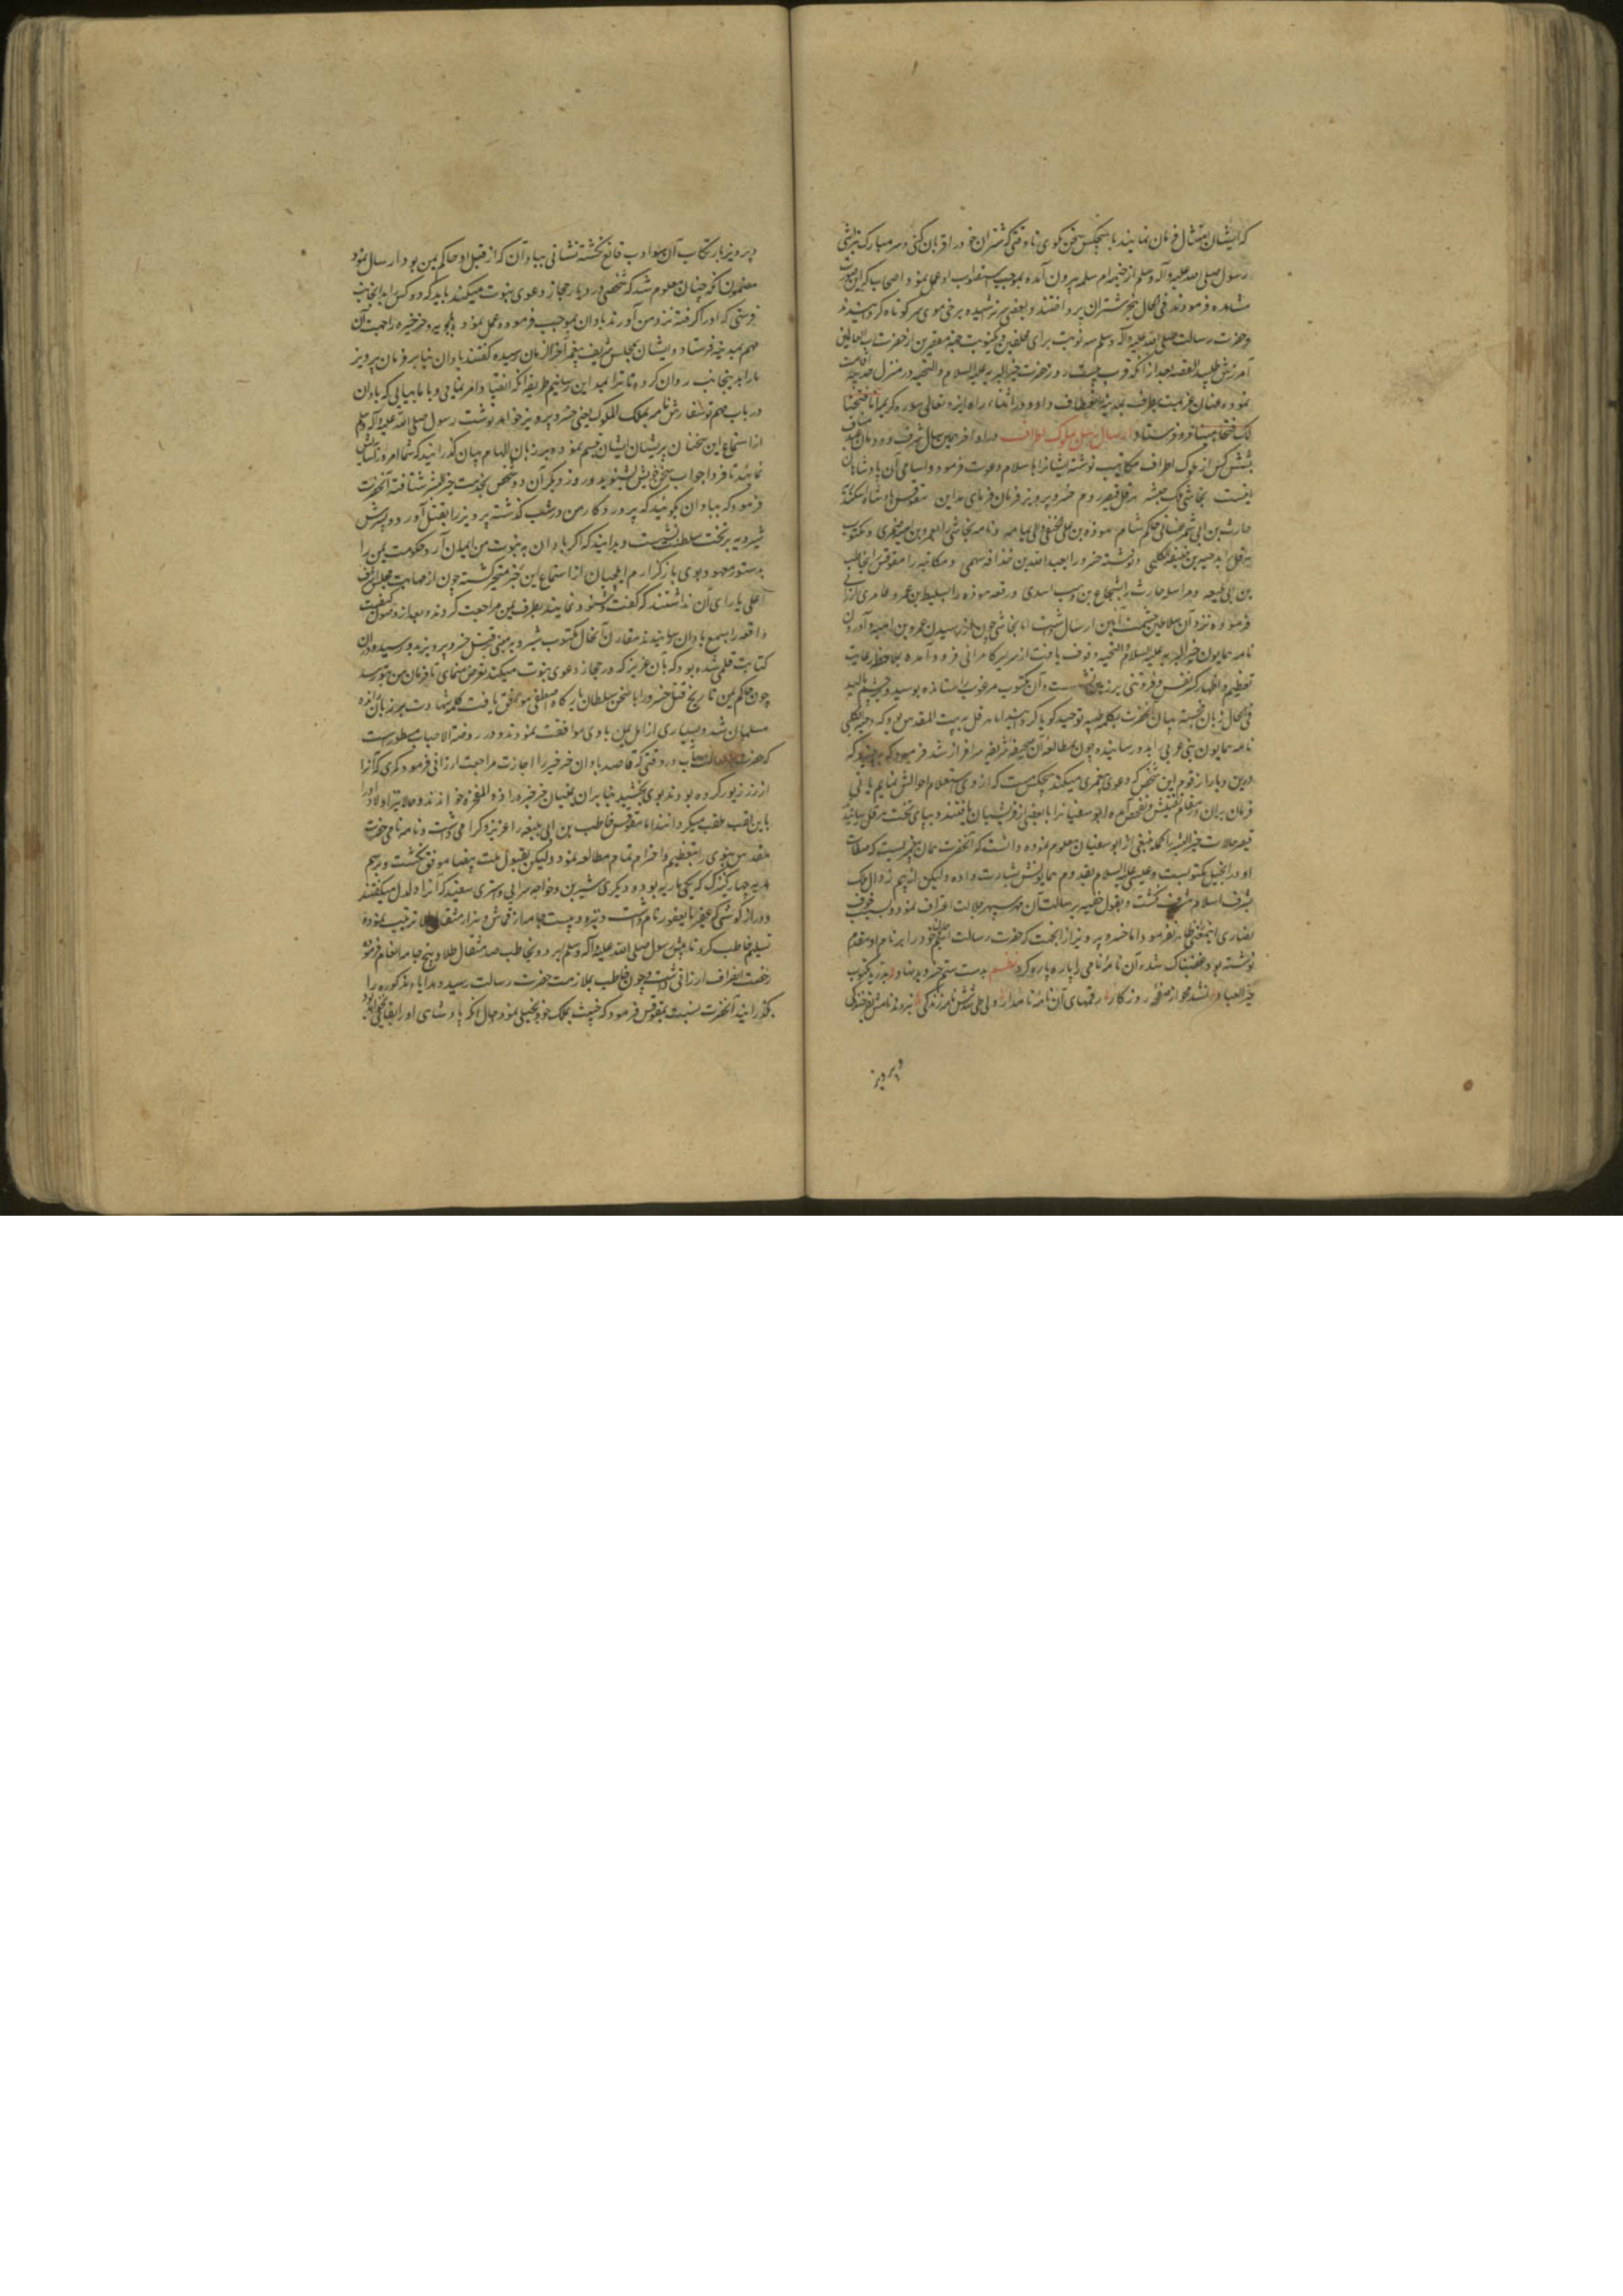 که ایشان امتثال فرمان نمایند با هیچکس سخن مکوی تا وقتی که شتران خود را قربان کنی و سر مبارک بتراشی
رسول صلی الله علیه وآله وسلم از خیمه ام سلمه بیرون آمده بموجب استصواب او عمل نمود و اصحاب که این صورت
مشاهده فرمودند فی الحال بنحر شتران پرداختند و بعضی سر تراشیده و برخی موی سر کوتاه کردند
وحضرت رسالت صلی الله علیه وآله وسلم سه نوبت برای محلقین و یکنوبت جهة مقصرین از حضرت رب العالمین
آمرزش طلبید القصه بعد از آنکه قرب بیست روز حضرت خیر البریه علیه السلام والتحیه در منزل حدیبیه اقامت
نموده عنان عزیمت بطرف مدینه انعطاف داد و در اثناء راه ایزد تعالی سوره کریمه انا فتحنا
لک فتحا مبینا فرو فرستاد ارسال رسل بملوک اطراف و در اواخر همین سال شرف ورود
بشش کس از ملوک اطراف مکاتیب نوشته ایشانرا باسلام دعوت فرمود و اسامی آن پادشاهان
اینست نجاشی ملک حبشه هرقل قیصر روم خسرو پرویز فرمان فرمای مداین مقوقس پادشاه اسکندریه
حارث بن ابی شمر غسانی حاکم شام هوذه بن علی الحنفی والی یمامه و نامه نجاشی را بعمرو بن امیه ضمری و مکتوب
هرقل را بدحیه بن خلیفه الکلبی و نوشته خسرو را بعبد الله بن حذافه سهمی و مکاتبه را مقوقس را بحاطب
بن ابی بلتعه و مراسله حارث را بشجاع بن وهب اسدی و رقعه هوذه را بسلیط بن عمرو عامری ارزانی
فرموده نزد آن سلاطین حشمت آیین ارسال داشت اما نجاشی چون از رسیدن عمرو بن امیه و آوردن
نامه همایون خیر البریه علیه السلام والتحیه وقوف یافت از سریر کامرانی فرود آمده بملاحظه رعایت
تعظیم و اظهار کسر نفس و فروتنی بر زمین نشست و آن مکتوب مرغوب را ستانده بوسید و بر چشم مالید
فی الحال زبان خجسته بیان آنحضرت بکلمه طیبه توحید گویا گردانید اما هرقل به بیت المقدس بود که دحیه کلبی
نامه همایون نبی عربی بدو رسانید و چون بمطالعه آن صحیفه شریفه سرافراز شد فرمود که
درین دیار از قوم این شخص که دعوی پیغمبری میکند هیچکس هست که از وی استعلام احوالش نمایم
فرمان بران در مقام تفتیش و تفحص آمده ابوسفیانرا با بعضی از قرشیان یافتند و بپای تخت هرقل رسانیدند
قیصر حالات خیر البشر را کما ینبغی از ابوسفیان معلوم نموده دانست که آنحضرت همان پیغمبریست که صفات
او در انجیل مکتوبست و عیسی علیه السلام بقدوم همایونش بشارت داده ولیکن از بیم زوال ملک
بشرف اسلام مشرف نگشت و بقول خفیه برسالت آن مهر سپهر جلالت اعتراف نمود و بسبب خوف
نصاری اینمعنی ظاهر نفرمود اما خسرو پرویز از آنجهت که حضرت رسالت نام خود را بر نام او مقدم
نوشته بود غضبناک شده آن نامه نامی را پاره پاره کرد نظم بدست ستم خسرو بدنهاد بدرید مکتوب
خیر العباد نشد محو از صفحه روزگار رقمهای آن نامه نامدار ولی طی شدش نامه زندگی
پرویز
و پرویز بارتکاب آن سوء ادب قانع نگشته نشانی ببادان که از قبل او حاکم یمن بود ارسال نمود
مضمون آنکه چنان معلوم شد که شخصی در دیار حجاز دعوی نبوت میکند باید که دو کس را بدانجانب
فرستی که او را گرفته نزد من آورند بادان بموجب فرموده عمل نمود بابویه و خرخسره را جهت آن
مهم بمدینه فرستاد و ایشان بمجلس شریف پیغمبر آخر الزمان رسیده گفتند بادان بنابر فرمان پرویز
ما را بدینجانب روان کرده تا ترا بمداین رسانیم طریقه آنکه انقیاد امر نمایی و با ما بیایی که بادان
در باب مهم تو سفارش نامه بملک الملوک یعنی خسرو پرویز خواهد نوشت رسول صلی الله علیه وآله وسلم
از استماع این سخنان پریشان ایشان تبسم نموده بر زبان الهام بیان گذرانید که شما امروز آسایش
نمائید تا فردا جواب سخن خویش بشنوید و روز دیگر آن دو شخص بخدمت خیر البشر شتافته آنحضرت
فرمود که ببادان بگوئید که پروردگار من در شب گذشته پرویز را بقتل آورد و پسرش
شیرویه بر تخت سلطنت نشست و بدانید که اگر بادان به نبوت من ایمان آرد حکومت یمن را
بدستور معهود بوی بازگذارم ایلچیان از استماع این خبر متحیر گشته چون از مهابت مجلس اشرف
اعلی یارای آن نداشتند که گفت و شنود نمایند بطرف یمن مراجعت کردند و بعد از وصول کیفیت
واقعه را بسمع بادان رسانیدند مقارن آنحال مکتوب شیرویه مبنی از قتل خسرو پرویز بدو رسید و در آن
کتابت قلمی شده بود که بآن عزیز که در حجاز دعوی نبوت میکند تعرض منمای تا فرمان من بتو رسد
چون حاکم یمن تاریخ قتل خسرو را با سخن سلطان بارگاه اصطفی موافق یافت کلمه شهادت بر زبان رانده
مسلمان شد و بسیاری از اهل یمن با وی موافقت نمودند و در روضة الاحباب مسطور است
که حضرت رسالت مآب در وقتی که قاصد بادان خرخسره را اجازت مراجعت ارزانی فرمود کمری که آنرا
از زر زیور کرده بودند بوی بخشید بنابران یمنیان خرخسره را ذو المفخره خواندند و حالا نیز اولاد او را
باین لقب ملقب میگردانند اما مقوقس حاطب بن ابی بلتعه را عزیز و گرامی داشت و نامه نامی حضرت
مقدس نبوی را بتعظیم و احترام تمام مطالعه نمود ولیکن بقبول ملت بیضا موفق نگشت و برسم
هدیه چهار کنیزک که یکی ماریه بود و دیگری شیرین و خواجه سرایی و استری سفید که آنرا دلدل میگفتند
و درازگوشی که عفیر یا یعفور نام داشت و نیزه و بیست جامه از قماش و هزار مثقال طلا ترتیب نموده
تسلیم حاطب کرد تا پیش رسول صلی الله علیه وآله وسلم برد و بحاطب صد مثقال طلا و پنج جامه انعام فرموده
رخصت انصراف ارزانی داشت و چون حاطب بملازمت حضرت رسالت رسید و هدایای مذکوره را
بگذرانید آنحضرت نسبت بمقوقس فرمود که خبیث بملک خود بخیلی نمود و حال آنکه پادشاهی او را بقائی نخواهد بود